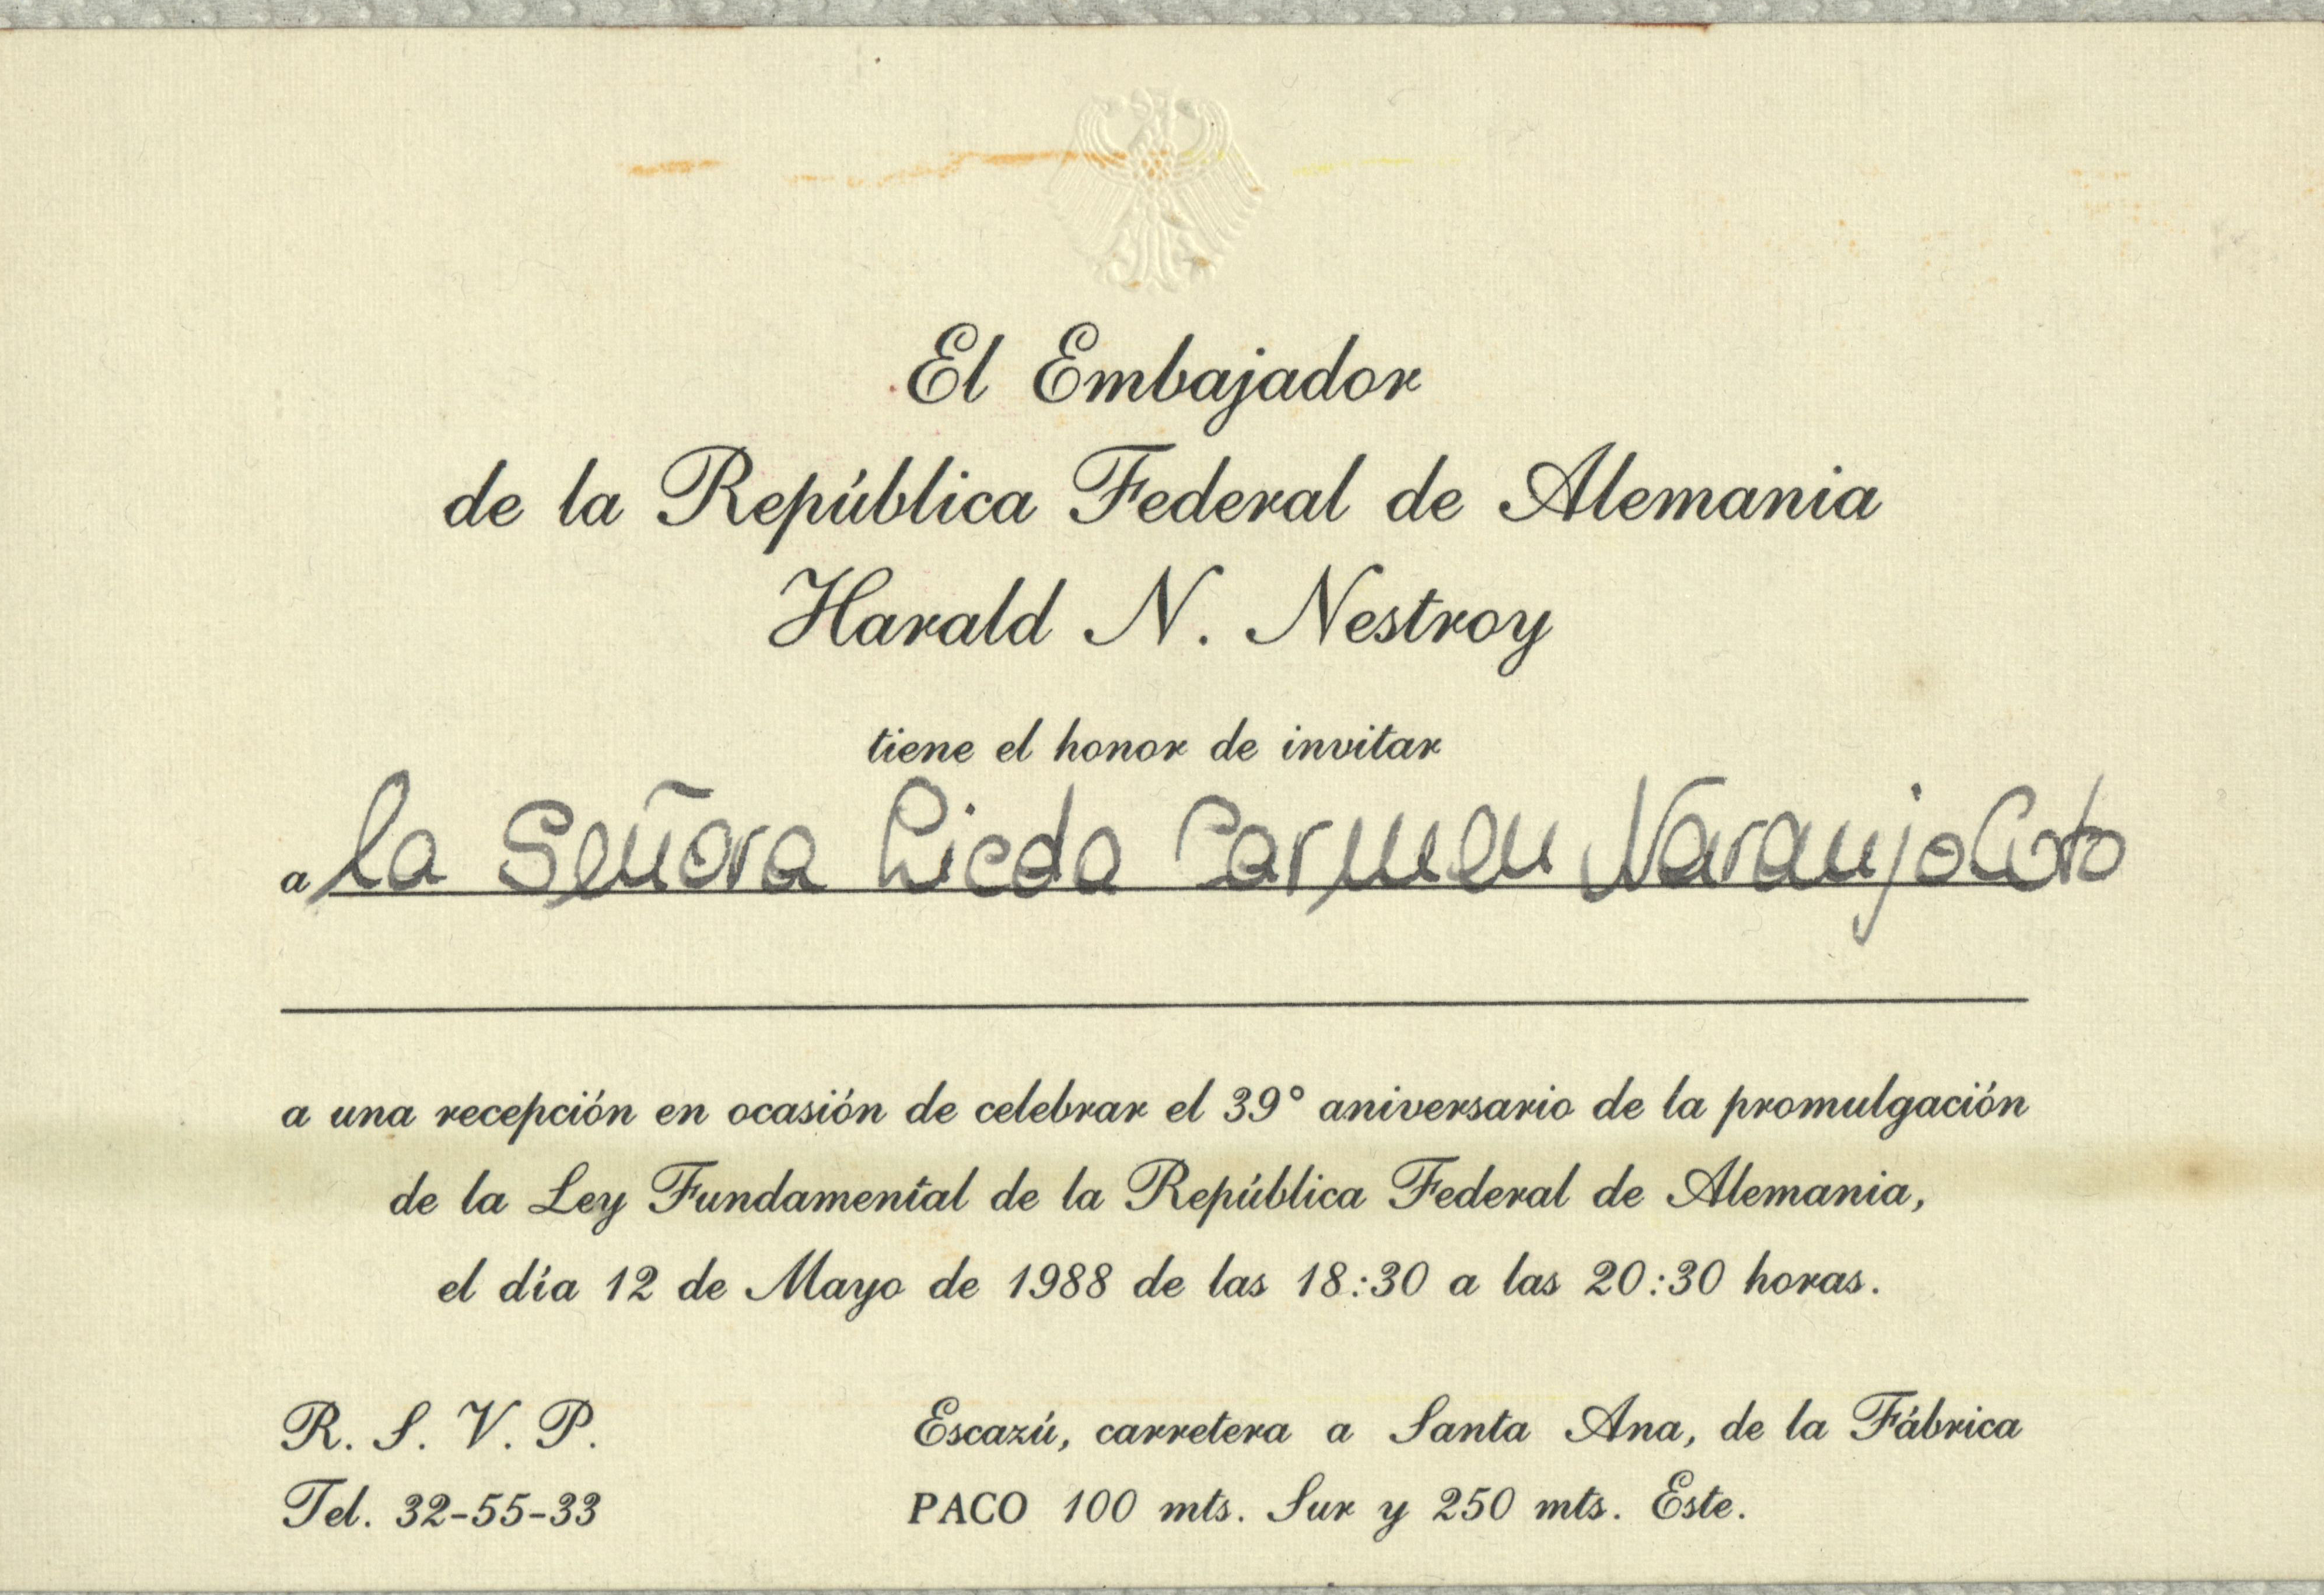 El Embajador
de la República Federal de Alemania
Harald N. Nestroy
tiene el honor de invitar
a la Señora Licda Carmen Naranjo Coto
a una recepción en ocasión de celebrar el 39° aniversario de la promulgación
de la Ley Fundamental de la República Federal de Alemania,
el día 12 de Mayo de 1988 de las 18:30 a las 20:30 horas.
R. S. V. P.
Tel. 32-55-33
Escazú, carretera a Santa Ana, de la Fábrica
PACO 100 mts. Sur y 250 mts. Este.